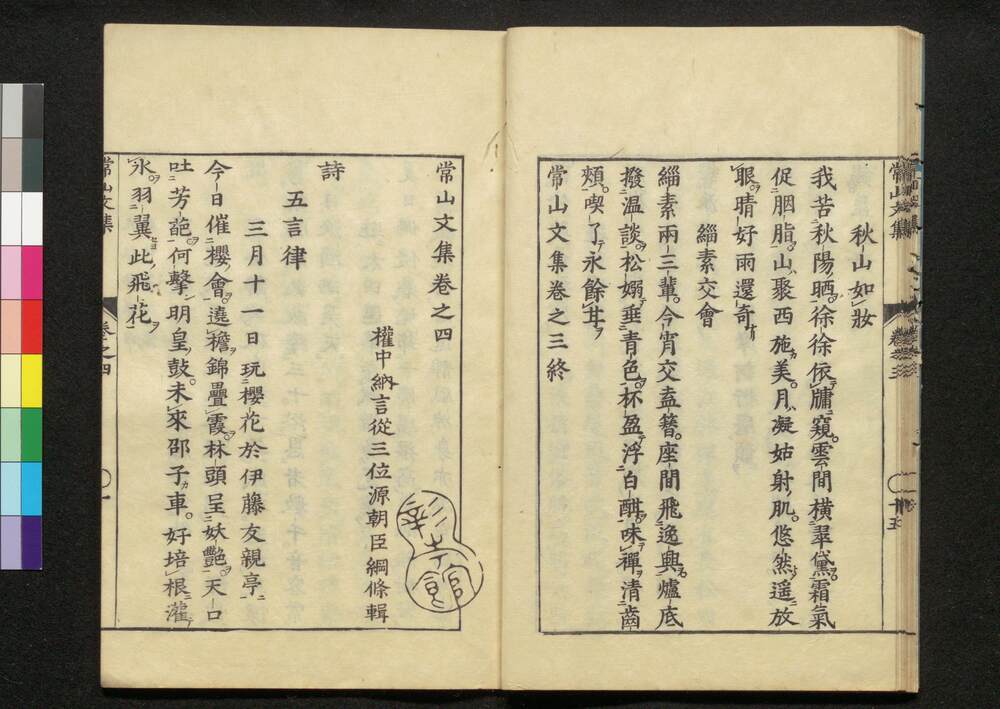 秋山如妝
我苦秋陽晒徐徐依牗窺雲間横翠黛霜氣
促胭脂山聚西施美月凝姑射肌悠然遥放
眼晴好雨還奇
緇素交會
緇素兩三輩今宵交盍簪座間飛逸興爐底
撥温談松嫋垂青色杯盈浮白酣味禪清齒
頰喫了永餘甘
常山文集卷之三終
常山文集 卷之三 十五
常山文集卷之四
權中納言從三位源朝臣綱條輯
詩
五言律
三月十一日玩櫻花於伊藤友親亭
今日催櫻會遶檐錦疊霞林頭呈妖艷天口
吐芳葩何擊明皇鼓未來邵子車好培根灌
水羽翼此飛花
常山文集 卷之四 一
彰考館